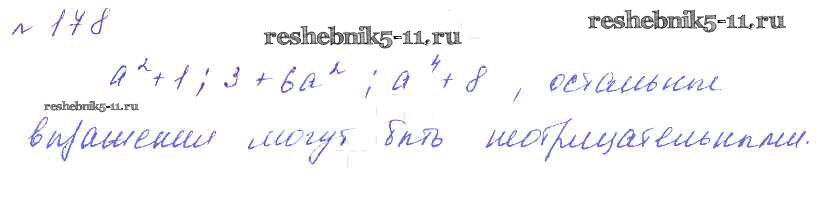 № 178
reshebnik5-11.ru
reshebnik5-11.ru
a²+1; 3+6a²; a⁴+8, остальные
reshebnik5-11.ru
выражения могут быть неотрицательными.